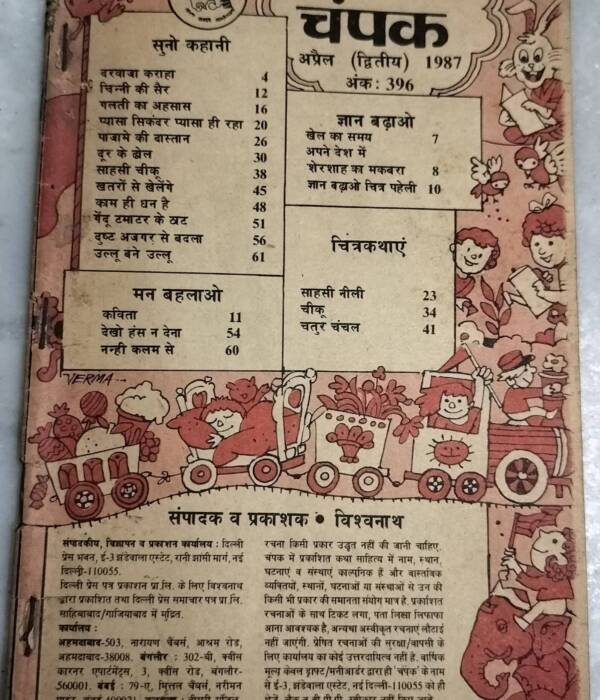 चंपक
अप्रैल (द्वितीय) 1987
अंक: 396
सुनो कहानी
दरवाजा कराहा 4
चिन्नी की सैर 12
गलती का अहसास 16
प्यासा सिकंदर प्यासा ही रहा 20
पाजामे की दास्तान 26
दूर के ढोल 30
साहसी चीकू 38
खतरों से खेलेंगे 45
काम ही धन है 48
गेंदू टमाटर के ठाट 51
दुष्ट अजगर से बदला 56
उल्लू बने उल्लू 61
ज्ञान बढ़ाओ
खेल का समय 7
अपने देश में
शेरशाह का मकबरा 8
ज्ञान बढ़ाओ चित्र पहेली 10
चित्रकथाएं
साहसी नीली 23
चीकू 34
चतुर चंचल 41
मन बहलाओ
कविता 11
देखो हंस न देना 54
नन्ही कलम से 60
VERMA
संपादक व प्रकाशक • विश्वनाथ
संपादकीय, विज्ञापन व प्रकाशन कार्यालय : दिल्ली
प्रेस भवन, ई-3 झंडेवाला एस्टेट, रानी झांसी मार्ग, नई
दिल्ली-110055.
दिल्ली प्रेस पत्र प्रकाशन प्रा.लि. के लिए विश्वनाथ
द्वारा प्रकाशित तथा दिल्ली प्रेस समाचार पत्र प्रा.लि.
साहिबाबाद/गाजियाबाद में मुद्रित.
कार्यालय :
अहमदाबाद-503, नारायण चैंबर्स, आश्रम रोड,
अहमदाबाद-38008. बंगलौर : 302-बी, क्वींस
कारनर एपार्टमेंट्स, 3, क्वींस रोड, बंगलौर-
560001. बंबई : 79-ए, मित्तल चैंबर्स, नरीमन
रचना किसी प्रकार उद्धृत नहीं की जानी चाहिए.
चंपक में प्रकाशित कथा साहित्य में नाम, स्थान,
घटनाएं व संस्थाएं काल्पनिक हैं और वास्तविक
व्यक्तियों, स्थानों, घटनाओं या संस्थाओं से उन की
किसी भी प्रकार की समानता संयोग मात्र है. प्रकाशित
रचनाओं के साथ टिकट लगा, पता लिखा लिफाफा
आना आवश्यक है, अन्यथा अस्वीकृत रचनाएं लौटाई
नहीं जाएंगी. प्रेषित रचनाओं की सुरक्षा/वापसी के
लिए कार्यालय का कोई उत्तरदायित्व नहीं है. वार्षिक
मूल्य केवल ड्राफ्ट/मनीआर्डर द्वारा ही 'चंपक' के नाम
से ई-3, झंडेवाला एस्टेट, नई दिल्ली-110055 को ही